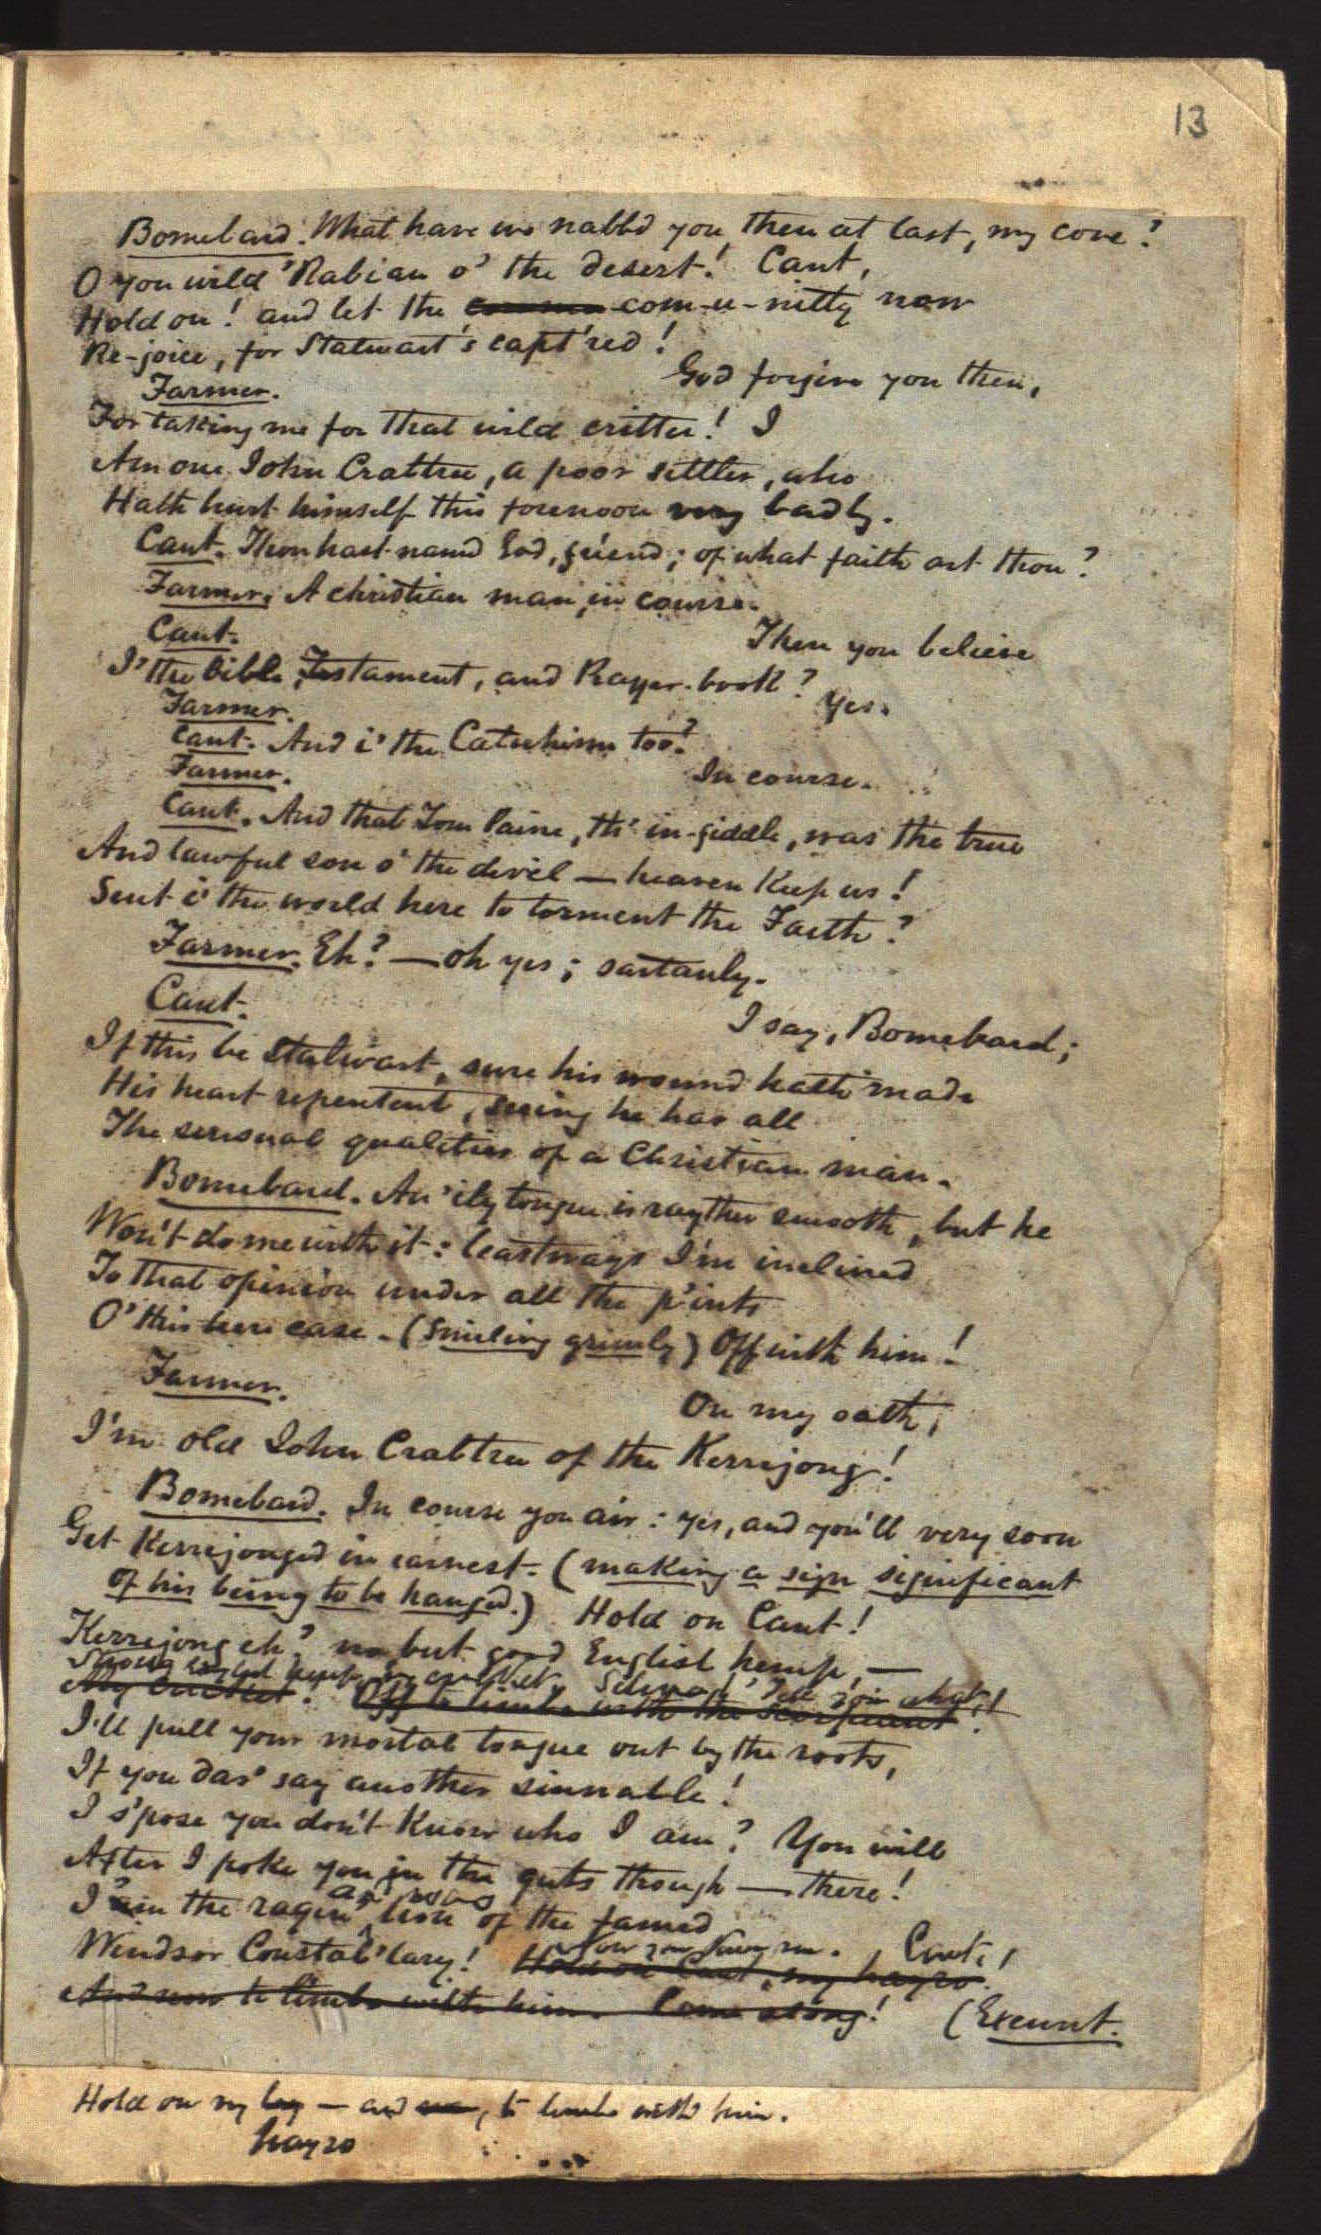 13
Bomebard. What have we nabb'd you then at last, my cove?
O you wild 'Rabian o' the desert! Cant,
Hold on! and let the com-u-nitty now
Re-joice, for Stalwart's capt'red!
Farmer. God forgive you then,
For taking me for that wild critter! I
Am one John Crabtree, a poor settler, who
Hath hurt himself this forenoon very badly.
Cant. Thou hast nam'd God, friend; of what faith art thou?
Farmer. A christian man, in course.
Cant. Then you believe
I' the bible, Testament, and Prayer-book?
Farmer. Yes.
Cant. And i' the Catechism too?
Farmer. In course.
Cant. And that Tom Paine, th' in-fiddle, was the true
And lawful son o' the devil — heaven keep us!
Sent i' the world here to torment the Faith?
Farmer. Eh? — oh yes; sartanly.
Cant. I say, Bomebard;
If this be Stalwart, sure his wound hath made
His heart repentent, seeing he has all
The sensual qualities of a Christian man.
Bomebard. An 'ily tongue is rayther smooth, but he
Won't do me with it: leastways I'm inclined
To that opinion under all the p'ints
O' this here case. (Smiling grimly) Off with him!
Farmer. On my oath,
I'm old John Crabtree of the Kerrijong!
Bomebard. In course you air: yes, and you'll very soon
Get Kerrijonged in earnest. (making a sign significant
of his being to be hanged.) Hold on Cant!
Kerrijong eh? no but good English hemp, —
Strong English hemp my cricket. Tell you what!
My cricket. Off to limbo with the
I'll pull your mortal tongue out by the roots,
If you dar' say another sinnable!
I s'pose you don't know who I am? You will
After I poke you in the guts though — there!
an'
I'm the ragin' lion of the famed
Windsor Constab'lary! Now you know me. Cant,
Hold on Cant, my hayro.
And now to limbo with him. Come along! (Exeunt.
Hold on my boy — and, to limbo with him.
hayro